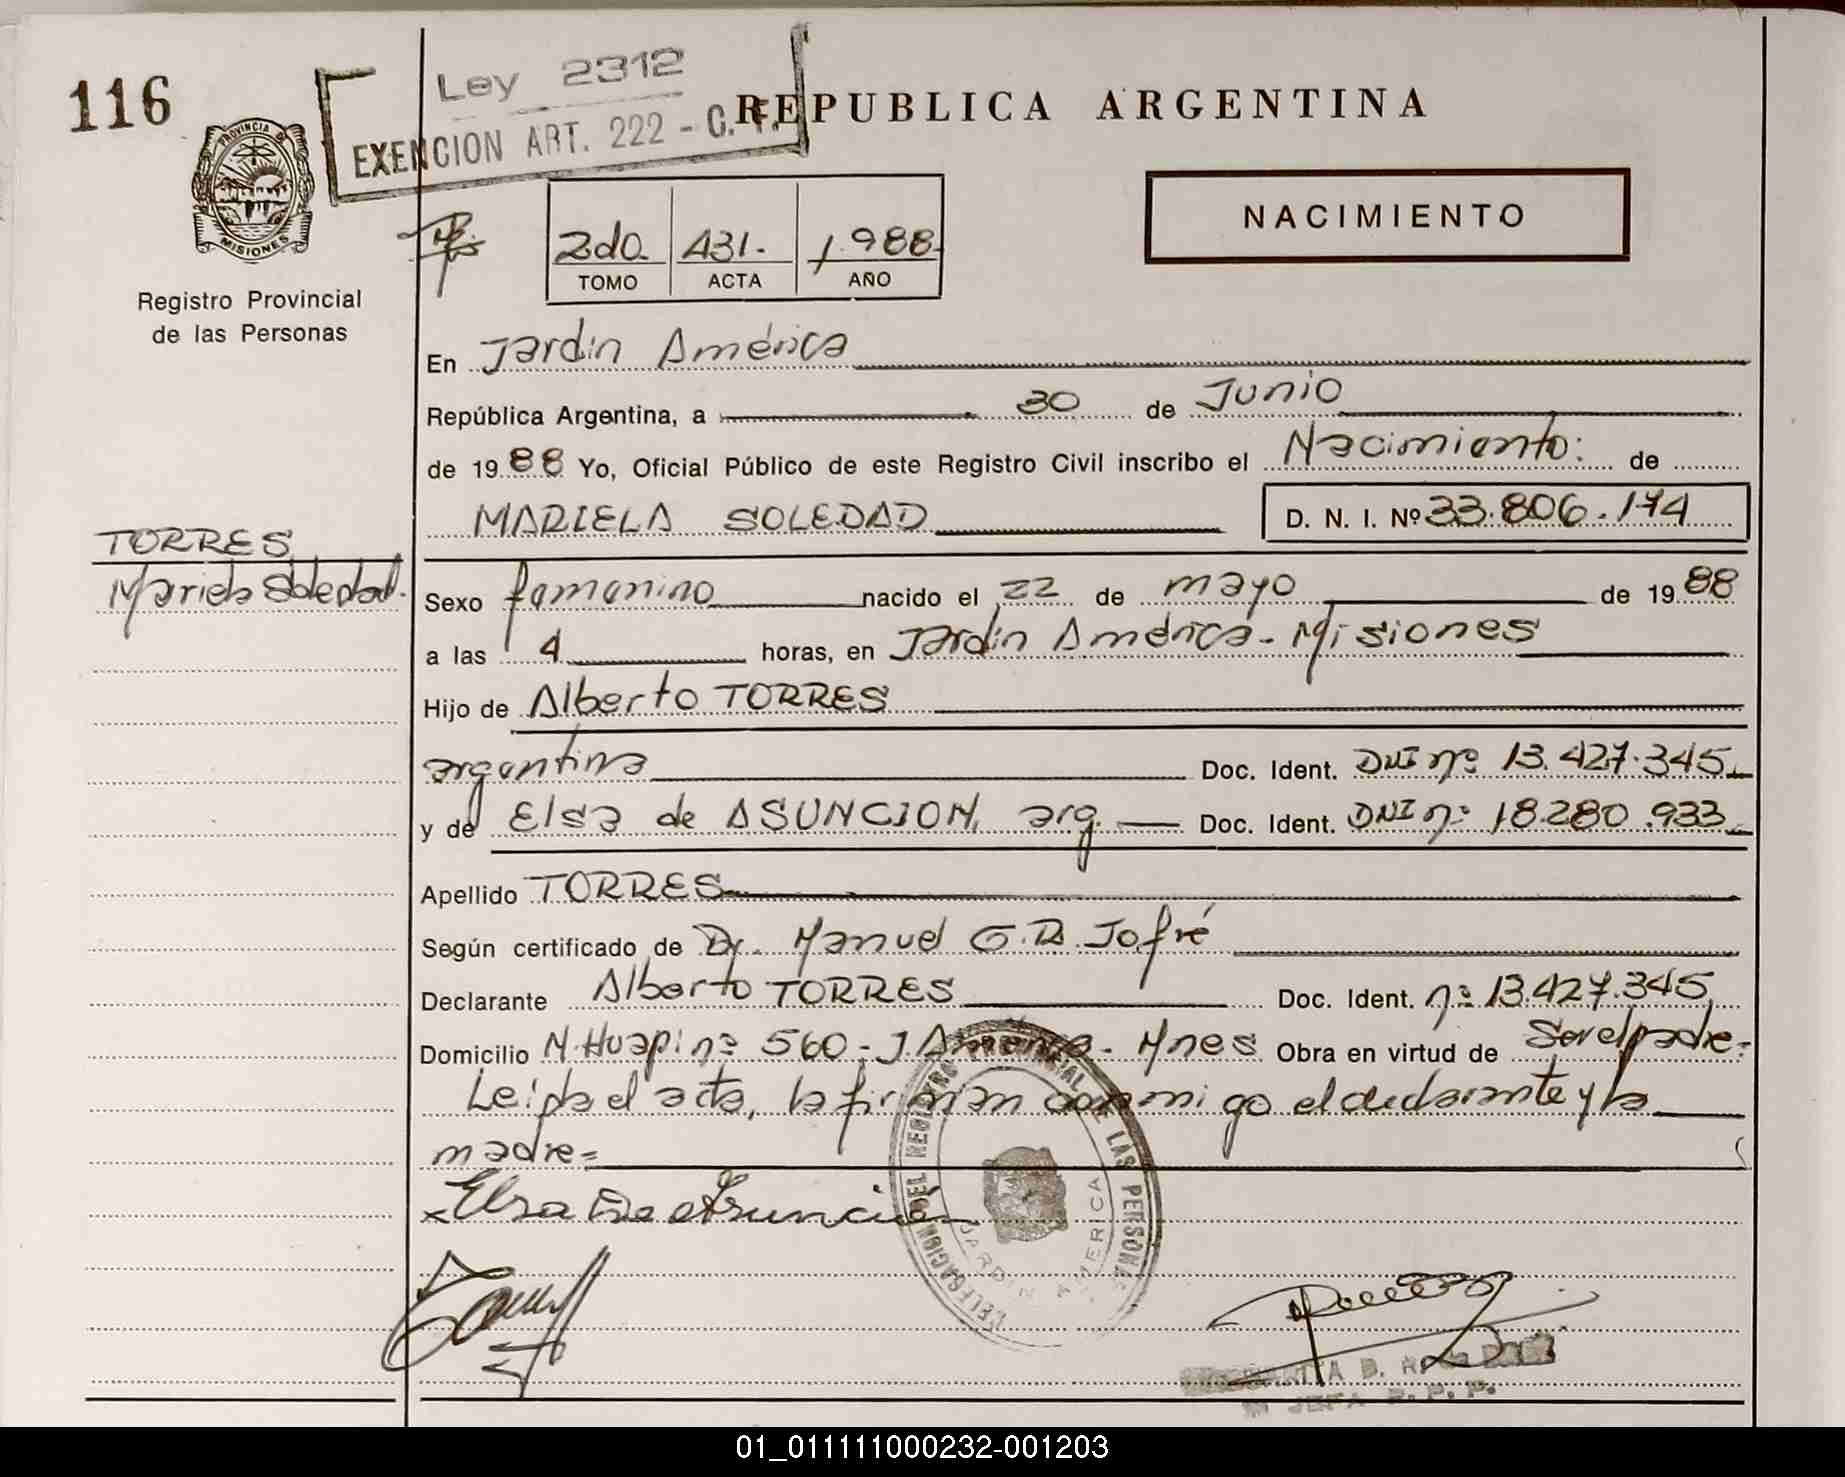 116
Ley 2312
EXENCION ART. 222 - C. F.
REPUBLICA ARGENTINA
PROVINCIA DE
MISIONES
NACIMIENTO
2do. 431.- 1.988.
TOMO ACTA AÑO
Registro Provincial
de las Personas
En Jardin América
República Argentina, a 30 de Junio
de 1988 Yo, Oficial Público de este Registro Civil inscribo el Nacimiento: de
MARIELA SOLEDAD D. N. I. Nº 33.806.174
TORRES
Mariela Soledad.
Sexo femenino nacido el 22 de mayo de 1988
a las 4 horas, en Jardin América - Misiones
Hijo de Alberto TORRES
argentina Doc. Ident. DNI nº 13.427.345
y de Elsa de ASUNCION, arg. Doc. Ident. DNI nº 18.280.933
Apellido TORRES
Según certificado de Dr. Manuel G.R. Jofré
Declarante Alberto TORRES Doc. Ident. nº 13.427.345
Domicilio N.Huapi nº 560 - J.América - Mnes Obra en virtud de Ser el padre=
Leida el acta, la firman conmigo el declarante y la
madre=
x Elsa De Asunción
DELEGACION DEL REGISTRO PROVINCIAL DE LAS PERSONAS
JARDIN AMERICA
JEFA R. P. P.
01_011111000232-001203